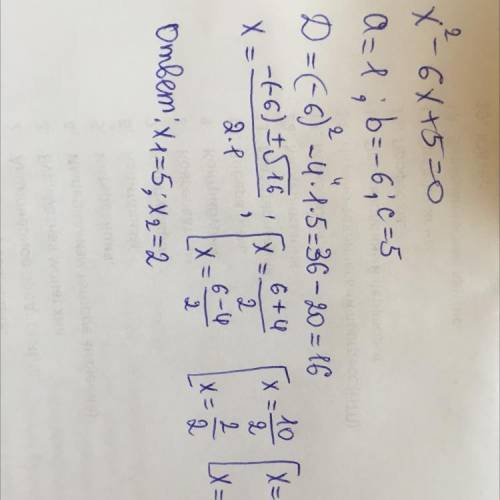 x² - 6x + 5 = 0
a = 1; b = -6; c = 5
D = (-6)² - 4·1·5 = 36 - 20 = 16
x = (-(-6) ± √16) / (2·1); [x = (6+4)/2 [x = 10/2 [x =
x = (6-4)/2 x = 2/2 x =
Ответ: x1 = 5; x2 = 2